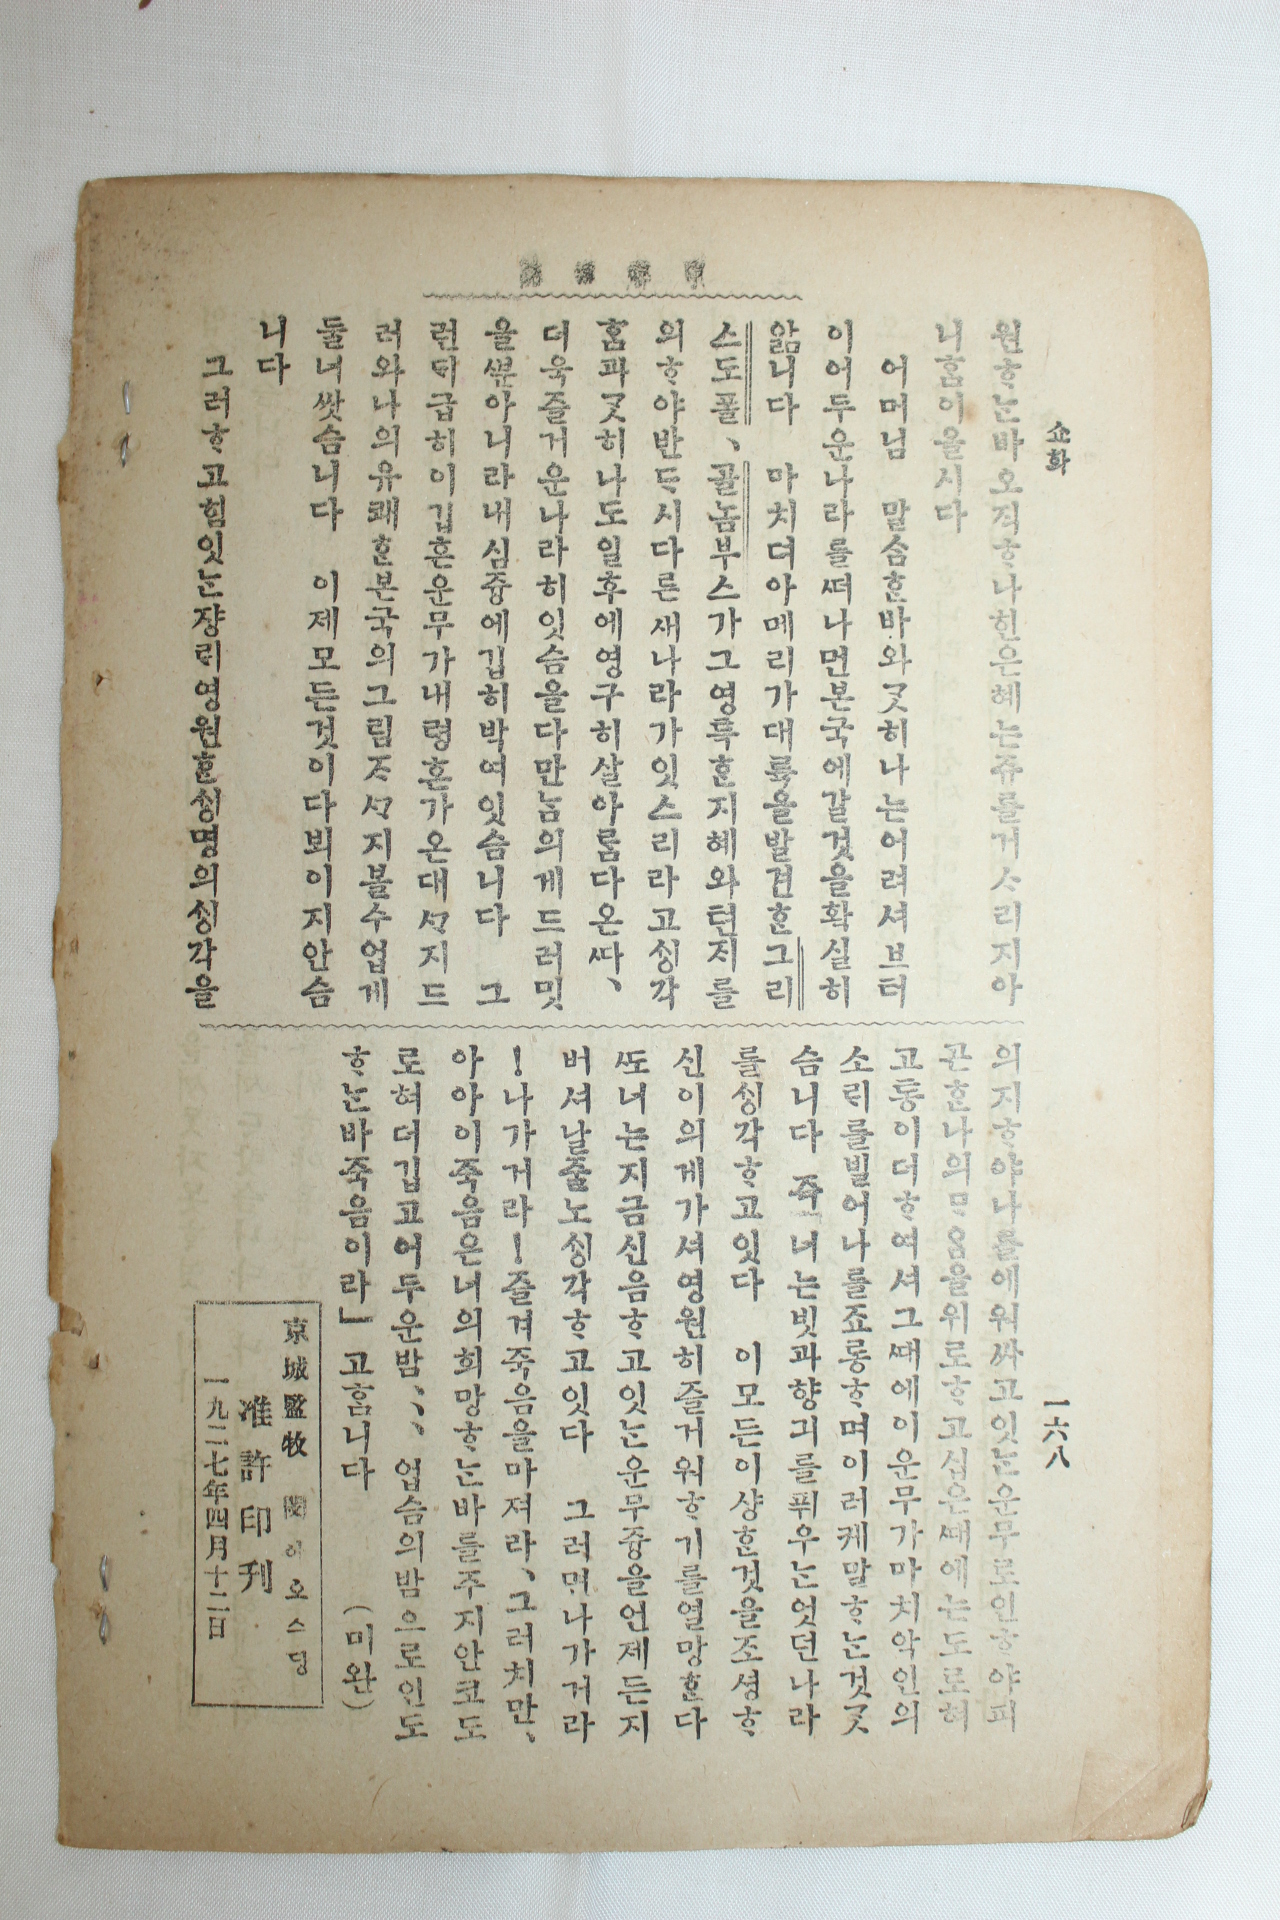 쇼화
一六八
원ᄒᆞᄂᆞᆫ바오직ᄒᆞ나힌은혜는쥬를거ᄉᆞ리지아
니홈이올시다
어머님 말ᄉᆞᆷᄒᆞᆫ바와ᄀᆞᆺ히나는어려셔브터
이어두운나라를ᄯᅥ나먼본국에갈것을확실히
앎니다 마치뎌아메리가대륙을발견ᄒᆞᆫ그리
스도폴、골놈부스가그영특ᄒᆞᆫ지혜와텬ᄌᆡ를
의ᄒᆞ야반ᄃᆞ시다른새나라가잇스리라고ᄉᆡᆼ각
홈과ᄀᆞᆺ히나도일후에영구히살아롬다온ᄯᅡ、
더욱즐거운나라히잇슴을다만ᄂᆞᆷ의게드러밋
을ᄲᅮᆫ아니라내심즁에깁히박여잇슴니다 그
런ᄃᆡ급히이깁흔운무가내령혼가온대ᄭᆞ지드
러와나의유쾌ᄒᆞᆫ본국의그림ᄌᆞᄭᆞ지볼수업게
둘너쌋슴니다 이제모든것이다뵈이지안슴
니다
그러ᄒᆞ고힘잇ᄂᆞᆫ쟝ᄅᆡ영원ᄒᆞᆫᄉᆡᆼ명의ᄉᆡᆼ각을
의지ᄒᆞ야나를에워싸고잇ᄂᆞᆫ운무로인ᄒᆞ야피
곤ᄒᆞᆫ나의ᄆᆞᄋᆞᆷ을위로ᄒᆞ고십은ᄯᅢ에는도로혀
고통이더ᄒᆞ여셔그ᄯᅢ에이운무가마치악인의
소ᄅᆡ를빌어나를죠롱ᄒᆞ며이러케말ᄒᆞᄂᆞᆫ것ᄀᆞᆺ
슴니다 즉 너는빗과향긔를퓌우ᄂᆞᆫ엇던나라
를ᄉᆡᆼ각ᄒᆞ고잇다 이모든이샹ᄒᆞᆫ것을조셩ᄒᆞ
신이의게가셔영원히즐거워ᄒᆞ기를열망ᄒᆞᆫ다
ᄯᅩ너는지금신음ᄒᆞ고잇ᄂᆞᆫ운무즁을언제든지
버셔날줄노ᄉᆡᆼ각ᄒᆞ고잇다 그러면나가거라
!나가거라!즐겨죽음을마져라、그러치만、
아아이죽음은너의희망ᄒᆞᄂᆞᆫ바를주지안코도
로혀더깁고어두운밤、、업슴의밤으로인도
ᄒᆞᄂᆞᆫ바죽음이라」고홈니다 (미완)
京城監牧 閔아오스딩
准許印刊
一九二七年四月十二日